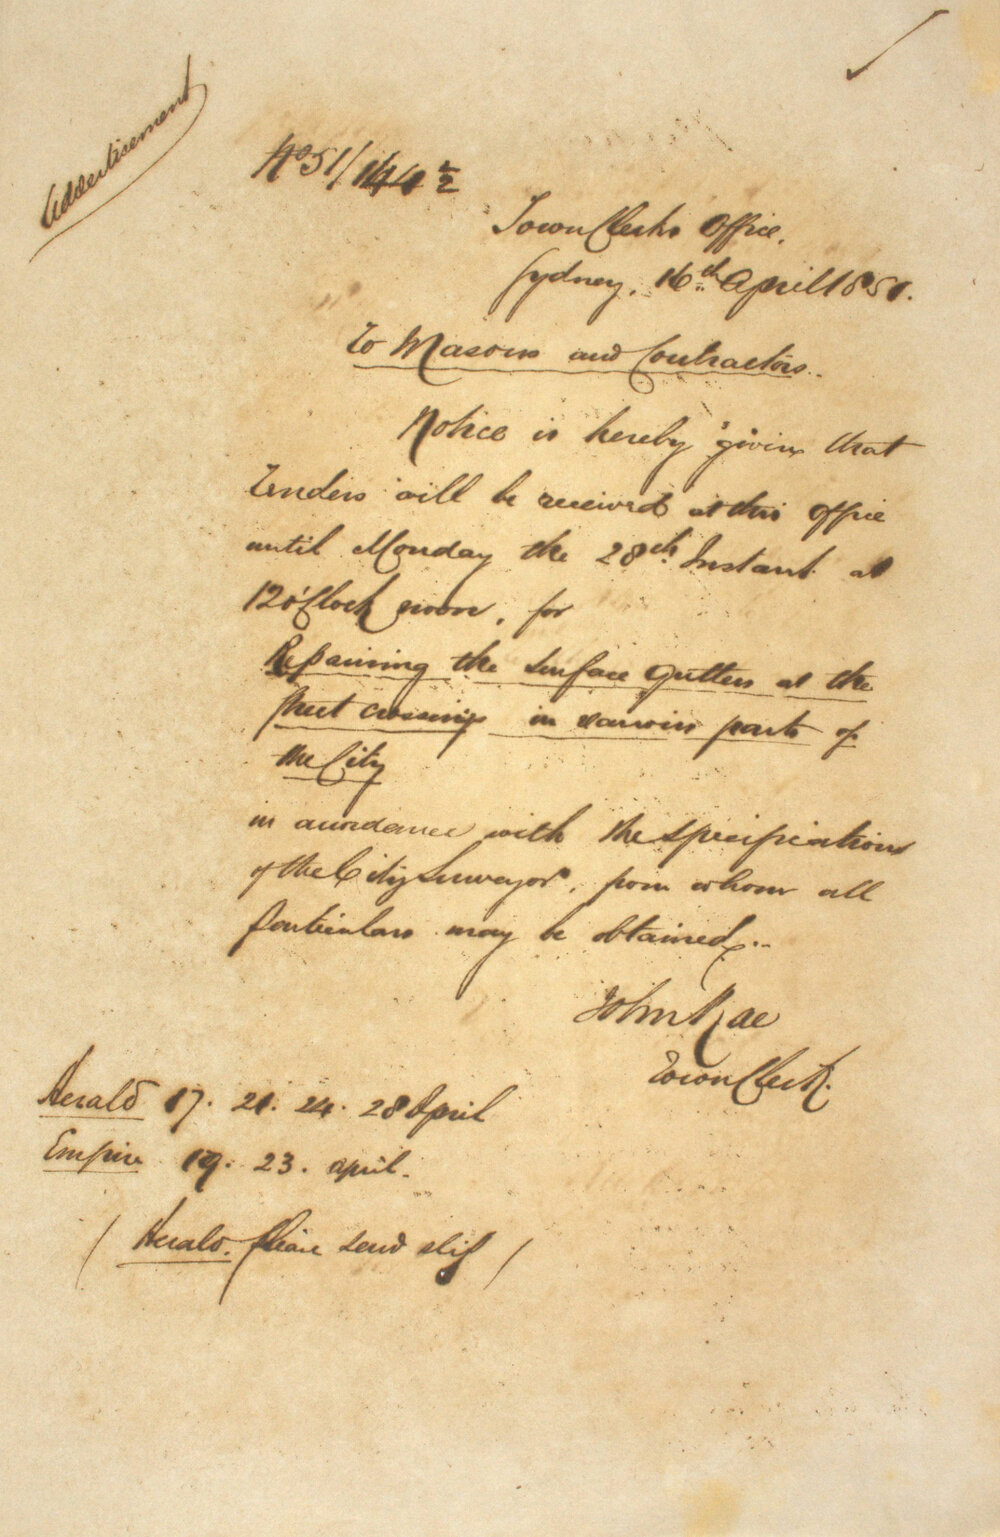 Advertisement
No 51/144 1/2
Town Clerks Office.
Sydney. 16th April 1851.
To Masons and Contractors.
Notice is hereby given that
Tenders will be received at this Office
until Monday the 28th Instant at
12 o'Clock noon, for
Repairing the surface gutters at the
street crossings in various parts of
the City
in accordance with the specifications
of the City Surveyor, from whom all
particulars may be obtained.
John Rae
Town Clerk.
Herald 17. 21. 24. 28 April
Empire 19. 23. April.
( Herald. please send slip )